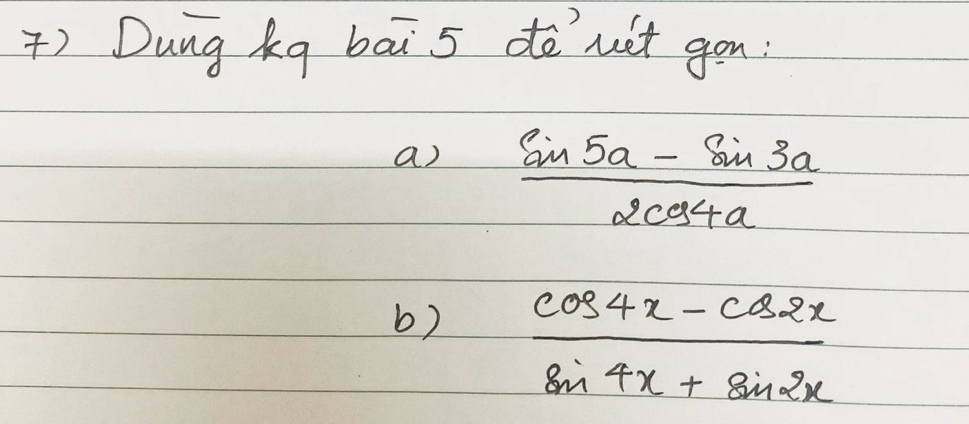 7) Dùng kq bài 5 để rút gọn:
a) sin 5a - sin 3a
2cos4a
b) cos4x - cos2x
sin 4x + sin2x